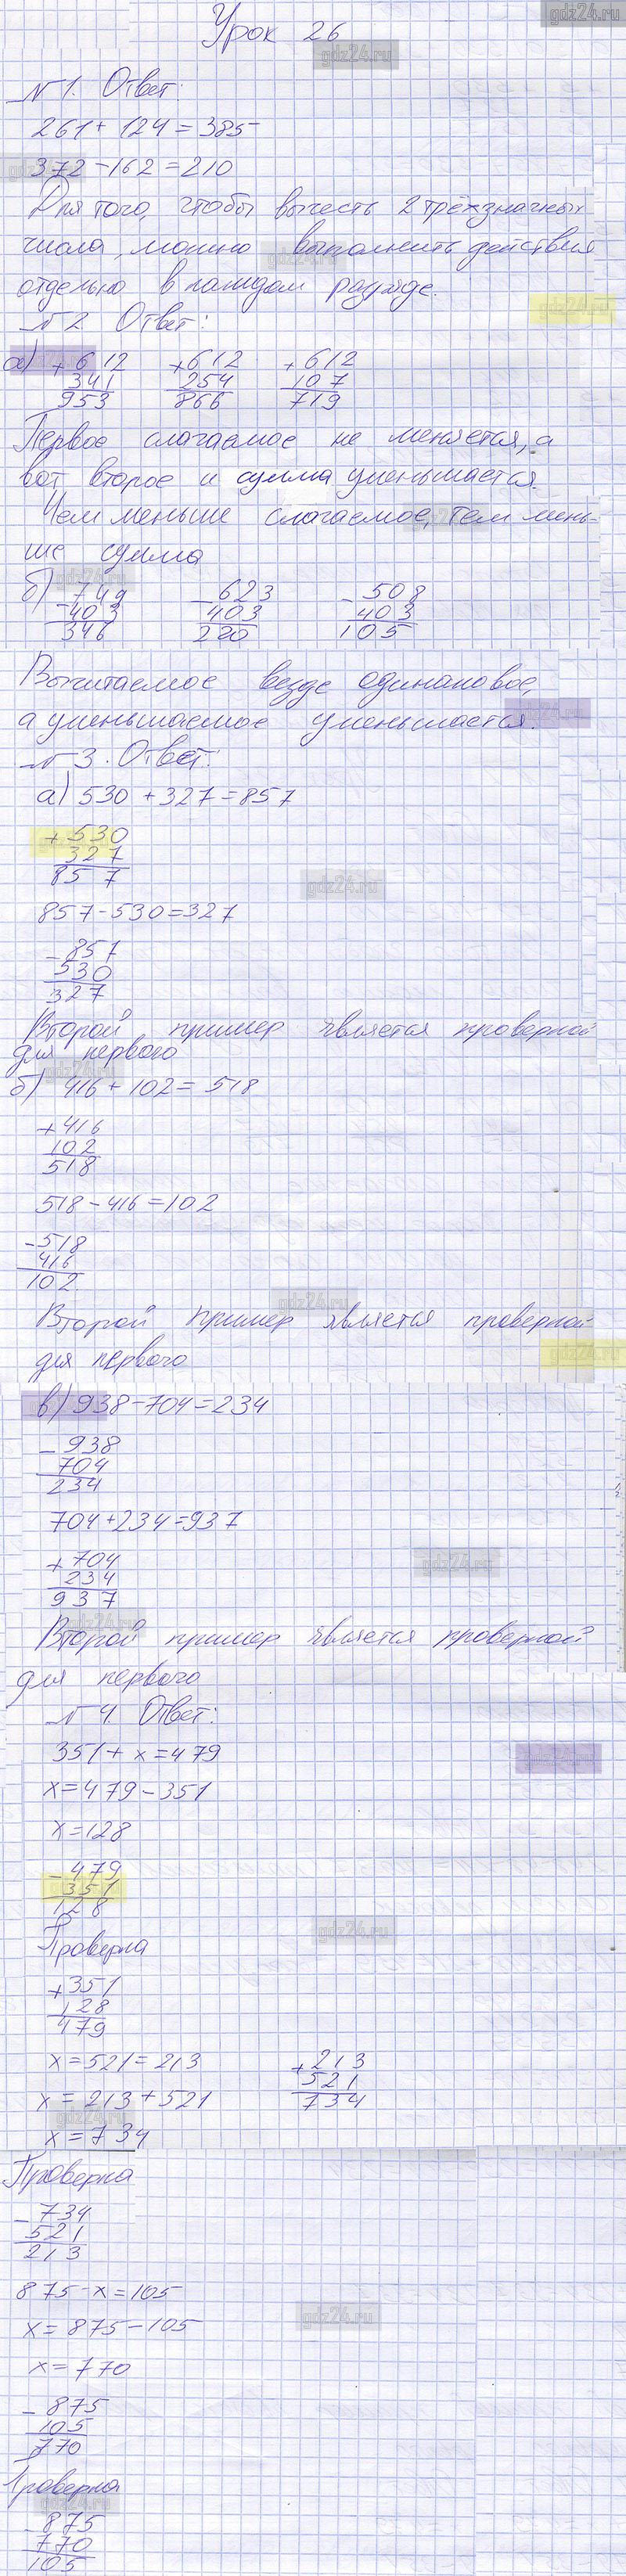 Урок 26
№ 1. Ответ:
261 + 124 = 385
372 - 162 = 210
Для того, чтобы вычесть 2 трёхзначных
числа, можно выполнить действия
отдельно в каждом разряде.
№ 2 Ответ:
а) + 612 + 612 + 612
341 254 107
953 866 719
Первое слагаемое не меняется, а
вот второе и сумма уменьшается.
Чем меньше слагаемое, тем мень-
ше сумма
б) - 749 - 623 - 508
403 403 403
346 220 105
Вычитаемое везде одинаковое,
а уменьшаемое уменьшается.
№ 3. Ответ:
а) 530 + 327 = 857
+ 530
327
857
857 - 530 = 327
- 857
530
327
Второй пример является проверкой
для первого
б) 416 + 102 = 518
+ 416
102
518
518 - 416 = 102
- 518
416
102
Второй пример является проверкой
для первого
в) 938 - 704 = 234
- 938
704
234
704 + 234 = 937
+ 704
234
937
Второй пример является проверкой
для первого
№ 4. Ответ:
351 + x = 479
x = 479 - 351
x = 128
- 479
351
128
Проверка
+ 351
128
479
x = 521 = 213 + 213
x = 213 + 521 521
x = 734 734
Проверка
- 734
521
213
875 - x = 105
x = 875 - 105
x = 770
- 875
105
770
Проверка
- 875
770
105
gdz24.ru